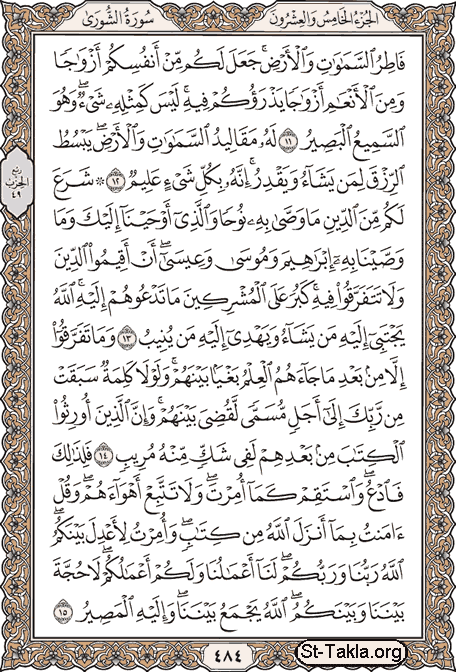 الجزء الخامس والعشرون
سورة الشورى
فَاطِرُ السَّمَٰوَٰتِ وَالْأَرْضِ ۚ جَعَلَ لَكُم مِّنْ أَنفُسِكُمْ أَزْوَٰجًا
وَمِنَ الْأَنْعَٰمِ أَزْوَٰجًا يَذْرَؤُكُمْ فِيهِ ۚ لَيْسَ كَمِثْلِهِۦ شَىْءٌ ۖ وَهُوَ
السَّمِيعُ الْبَصِيرُ ١١ لَهُۥ مَقَالِيدُ السَّمَٰوَٰتِ وَالْأَرْضِ ۖ يَبْسُطُ
الرِّزْقَ لِمَن يَشَآءُ وَيَقْدِرُ ۚ إِنَّهُۥ بِكُلِّ شَىْءٍ عَلِيمٌ ١٢ ۞ شَرَعَ
لَكُم مِّنَ الدِّينِ مَا وَصَّىٰ بِهِۦ نُوحًا وَالَّذِىٓ أَوْحَيْنَآ إِلَيْكَ وَمَا
وَصَّيْنَا بِهِۦٓ إِبْرَٰهِيمَ وَمُوسَىٰ وَعِيسَىٰٓ ۖ أَنْ أَقِيمُوا۟ الدِّينَ
وَلَا تَتَفَرَّقُوا۟ فِيهِ ۚ كَبُرَ عَلَى الْمُشْرِكِينَ مَا تَدْعُوهُمْ إِلَيْهِ ۚ اللَّهُ
يَجْتَبِىٓ إِلَيْهِ مَن يَشَآءُ وَيَهْدِىٓ إِلَيْهِ مَن يُنِيبُ ١٣ وَمَا تَفَرَّقُوٓا۟
إِلَّا مِنۢ بَعْدِ مَا جَآءَهُمُ الْعِلْمُ بَغْيًۢا بَيْنَهُمْ ۚ وَلَوْلَا كَلِمَةٌ سَبَقَتْ
مِن رَّبِّكَ إِلَىٰٓ أَجَلٍ مُّسَمًّى لَّقُضِىَ بَيْنَهُمْ ۚ وَإِنَّ الَّذِينَ أُورِثُوا۟
الْكِتَٰبَ مِنۢ بَعْدِهِمْ لَفِى شَكٍّ مِّنْهُ مُرِيبٍ ١٤ فَلِذَٰلِكَ
فَادْعُ ۖ وَاسْتَقِمْ كَمَآ أُمِرْتَ ۖ وَلَا تَتَّبِعْ أَهْوَآءَهُمْ ۖ وَقُلْ
ءَامَنتُ بِمَآ أَنزَلَ اللَّهُ مِن كِتَٰبٍ ۖ وَأُمِرْتُ لِأَعْدِلَ بَيْنَكُمُ ۖ
اللَّهُ رَبُّنَا وَرَبُّكُمْ ۖ لَنَآ أَعْمَٰلُنَا وَلَكُمْ أَعْمَٰلُكُمْ ۖ لَا حُجَّةَ
بَيْنَنَا وَبَيْنَكُمُ ۖ اللَّهُ يَجْمَعُ بَيْنَنَا ۖ وَإِلَيْهِ الْمَصِيرُ ١٥
ربع
الحزب
٤٩
٤٨٤
St-Takla.org